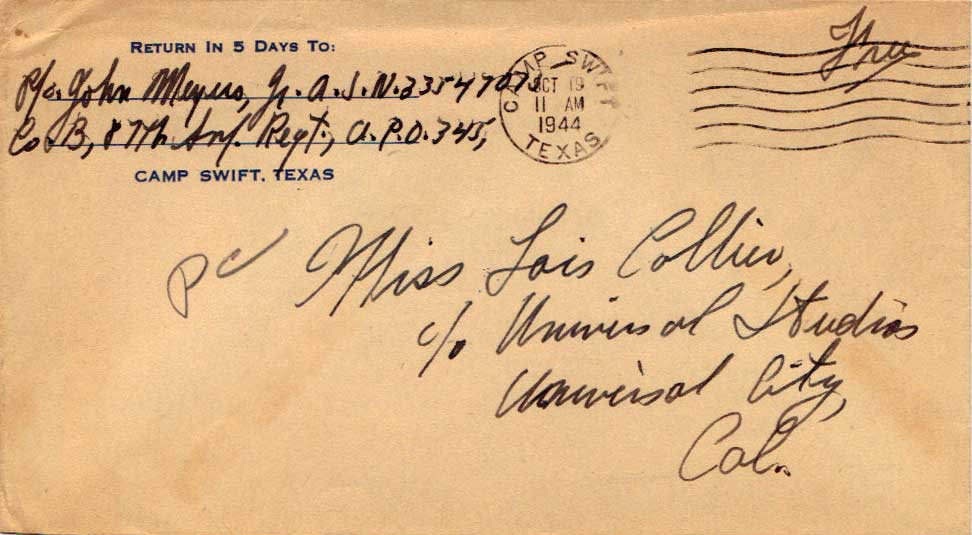 RETURN IN 5 DAYS TO:
Pfc. John Meyers, Jr. A.S.N. 33547075
Co B, 87th Inf. Regt., A.P.O. 345,
CAMP SWIFT, TEXAS
CAMP SWIFT
OCT 19
11 AM
1944
TEXAS
Free
pc
Miss Lois Collier,
c/o Universal Studios
Universal City,
Cal.